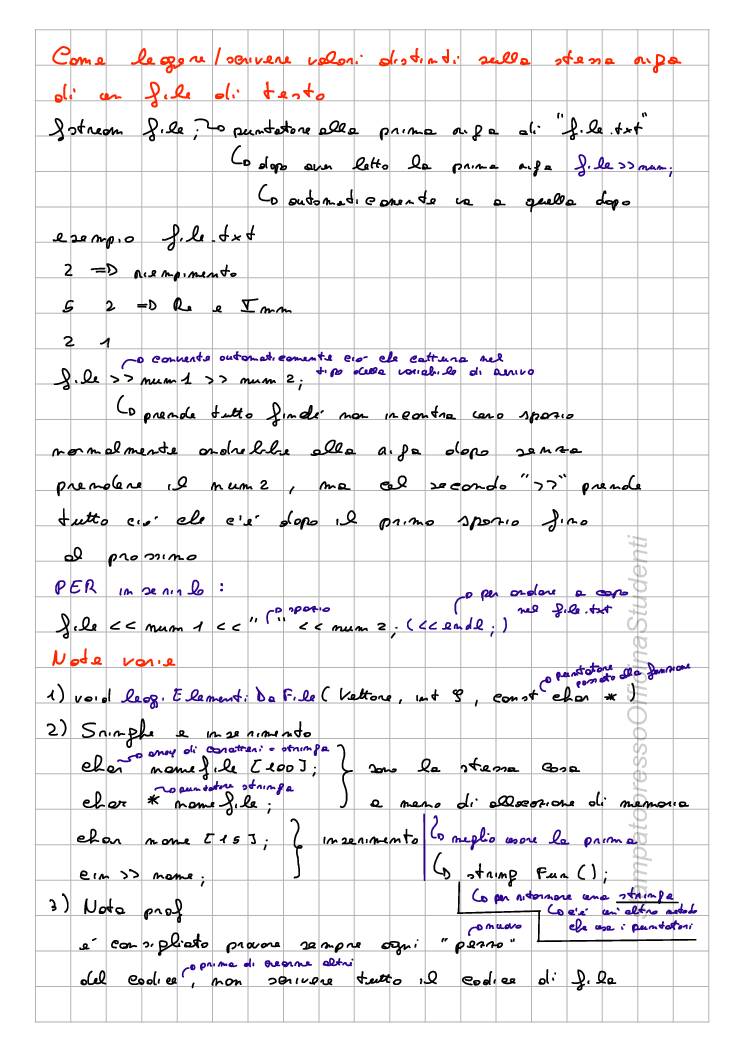 Come leggere/scrivere valori distinti sulla stessa riga
di un file di testo
fstream file; puntatore alla prima riga di "file.txt"
dopo aver letto la prima riga file>>num;
automaticamente va a quella dopo
esempio file.txt
2 => riempimento
5 2 => Re e Imm
2 1
converte automaticamente ciò che cattura nel
tipo della variabile di arrivo
file >> num1 >> num2;
prende tutto finché non incontra uno spazio
normalmente andrebbe alla riga dopo senza
prendere il num2, ma col secondo ">>" prende
tutto ciò che c'è dopo il primo spazio fino
al prossimo
PER inserirlo:
spazio
per andare a capo
nel file.txt
file << num1 << " " << num2; (<<endl;)
Note varie
puntatore
passato alla funzione
1) void leggiElementiDaFile(Vettore, int &, const char *)
2) Stringhe e inserimento
array di caratteri = stringa
char nomefile [100];
sono la stessa cosa
puntatore stringa
char * nomefile;
a meno di allocazione di memoria
char nome [15];
inserimento
meglio usare la prima
cin >> nome;
string Fun();
per ritornare una stringa
c'è un altro metodo
che usa i puntatori
3) Nota prof
nuovo
è consigliato provare sempre ogni "pezzo"
prima di crearne altri
del codice, non scrivere tutto il codice di fila
ampatopressoOfficinaStudenti